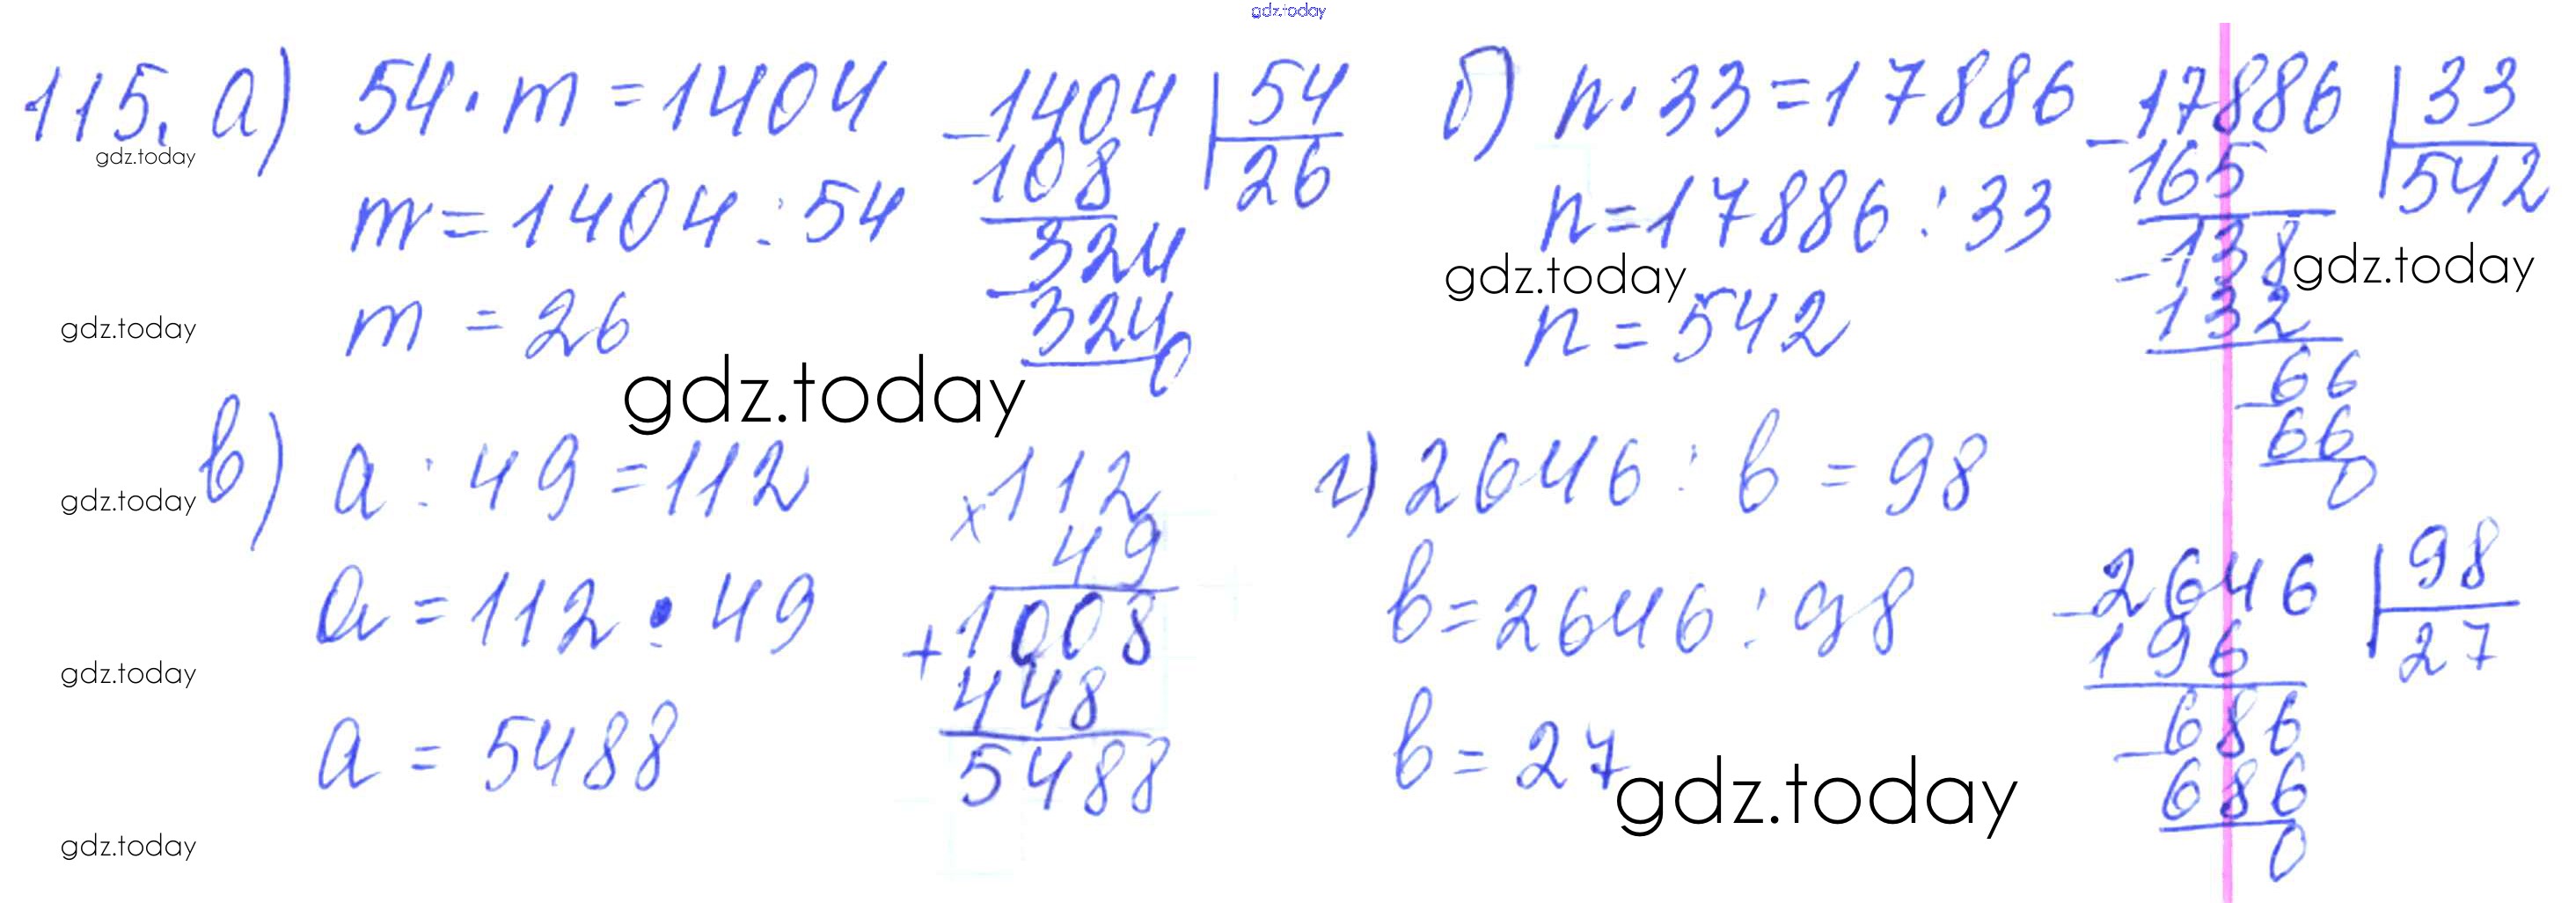 gdz.today
115. а) 54 · m = 1404
gdz.today
m = 1404 : 54
gdz.today
m = 26
-1404 | 54
108 26
-324
324
0
б) n · 33 = 17886
n = 17886 : 33
gdz.today
n = 542
-17886 | 33
165 542
-138
gdz.today
132
-66
66
0
gdz.today
в) a : 49 = 112
gdz.today
a = 112 · 49
gdz.today
a = 5488
gdz.today
×112
49
+1008
448
5488
г) 2646 : b = 98
b = 2646 : 98
b = 27
gdz.today
-2646 | 98
196 27
-686
686
0